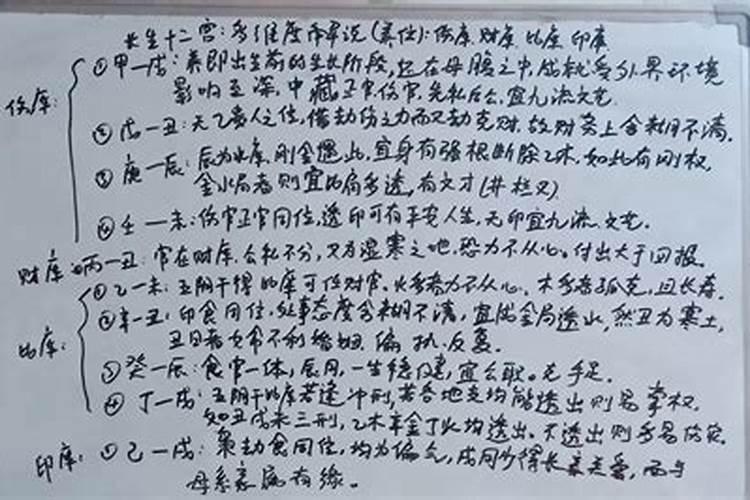 长生十二宫:多维度命易说(养位):伤库.财库.比库.印库
伤库:
①甲一戌:养即出生前的生长阶段,起在母腹之中,成就受外界环境
影响至深,中藏正官伤官,先私后公,宜九流文艺.
②戊一丑:天乙贵人之位,借劫伤之力而又劫克财,故财务上含糊不清.
③庚一辰:辰为水库,刚金遇此,宜身有强根断除乙木,如此有刚权,
金水局者则宜比肩多透,有文才(井栏叉)
④壬一未:伤官正官同位,透印可有平安人生,无印宜九流.文艺.
财库:丙一丑:官在财库,公私不分,又为湿寒之地,恐力不从心.付出大于回报.
比库:
①乙一未:五阴干得比库可任财官.火多者力不从心,木多者孤克,且长寿.
②辛一丑:印食同位,处事态度含糊不清,宜成金局透水,然丑为寒土,
丑日者女命不利婚姻,偏执.反复.
③癸一辰:食官一体,辰月,一生稳健,宜公职.克手足.
④丁一戌:五阴干比库若逢冲刑,若各地支均能透出则易掌权.
如丑戌未三刑,乙木辛金丁火均透出.不透出则多易伤灾.
印库:①己一戌:枭劫食同位,均为偏气,戌同少得长亲关爱,而与
母系家庭有缘。